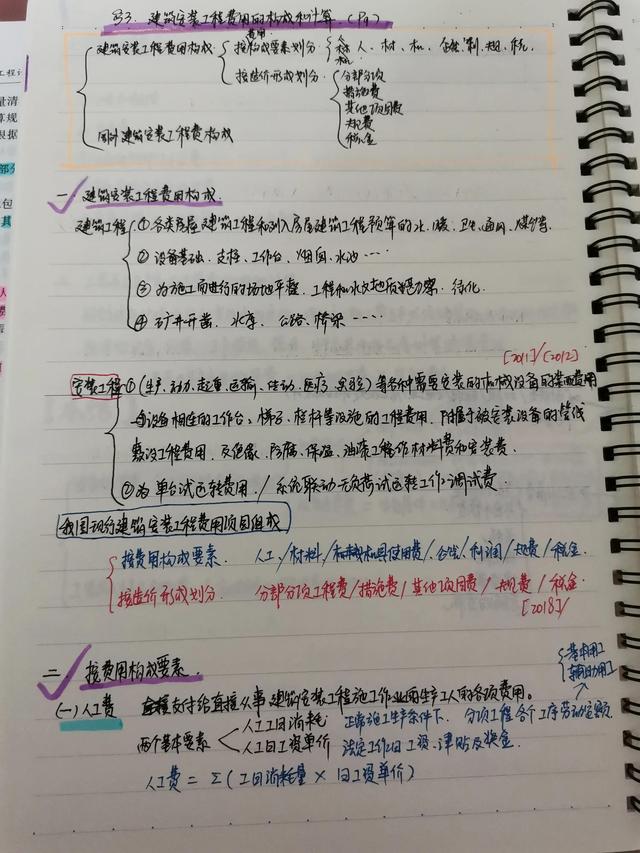 §3. 建筑安装工程费用的构成和计算.(P9)
建筑安装工程费用构成
按费用构成要素划分
人、材、机、企、利、规、税
按造价形成划分
分部分项
措施费
其他项目费
规费
税金
国外建筑安装工程费构成
一、建筑安装工程费用构成.
建筑工程
①各类房屋建筑工程和列入房屋建筑工程预算的水、暖、卫生、通风、煤气等
②设备基础、支柱、工作台、烟囱、水池……
③为施工而进行的场地平整、工程和水文地质勘察、绿化.
④矿井开凿、水库、公路、桥梁……
[2011]/[2012]
安装工程
①(生产、动力、起重、运输、传动、医疗、实验)等各种需要安装的机械设备的装配费用
与设备相连的工作台、梯子、栏杆等设施的工程费用.附属于被安装设备的管线
敷设工程费用.及绝缘、防腐、保温、油漆工程作材料费和安装费.
②为单台试运转费用./系统联动无负荷试运转工作、调试费.
我国现行建筑安装工程费用项目组成
按费用构成要素. 人工/材料/施工机具使用费/企管/利润/规费/税金.
按造价形成划分. 分部分项工程费/措施费/其他项目费/规费/税金
[2018]/
二、按费用构成要素.
基本用工
辅助用工
(一)人工费 支付给直接从事建筑安装工程施工作业的生产工人的各项费用。
两个基本要素
人工工日消耗 正常施工生产条件下.分项工程各个工序劳动定额
人工日工资单价 法定工作日工资.津贴及奖金.
人工费=Σ(工日消耗量×日工资单价)
工程计
量清
算规
根据